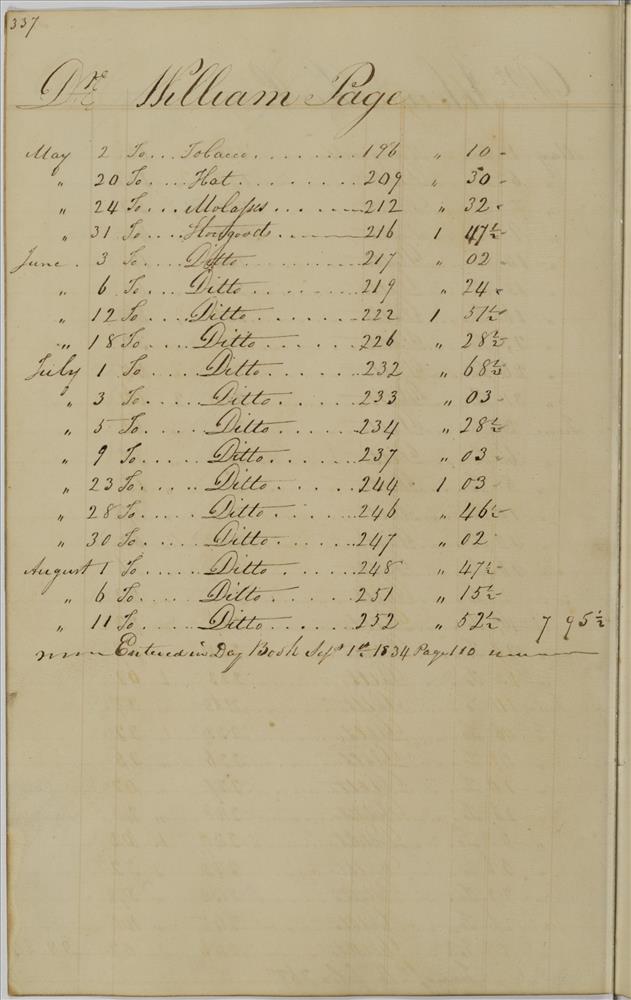 337
Dre William Page
May 2 To... Tobacco........196 " 10 -
" 20 To.... Hat..........209 " 30 -
" 24 To... Molasses......212 " 32 -
" 31 To.... Storgoods....216 1 47½
June. 3 To..... Ditto........217 " 02 -
" 6 To..... Ditto........219 " 24 -
" 12 To..... Ditto........222 1 51½
" 18 To..... Ditto.......226 " 28½
July 1 To..... Ditto.......232 " 68½
" 3 To..... Ditto.......233 " 03 -
" 5 To..... Ditto.......234 " 28½
" 9 To..... Ditto.......237 " 03 -
" 23 To..... Ditto.......244 1 03 -
" 28 To..... Ditto.......246 " 46½
" 30 To..... Ditto.......247 " 02
August 1 To..... Ditto.......248 " 47½
" 6 To..... Ditto.......251 " 15½
" 11 To..... Ditto.......252 " 52½ 7 95½
Entered in Day Book Sept 1st 1834 Page 110